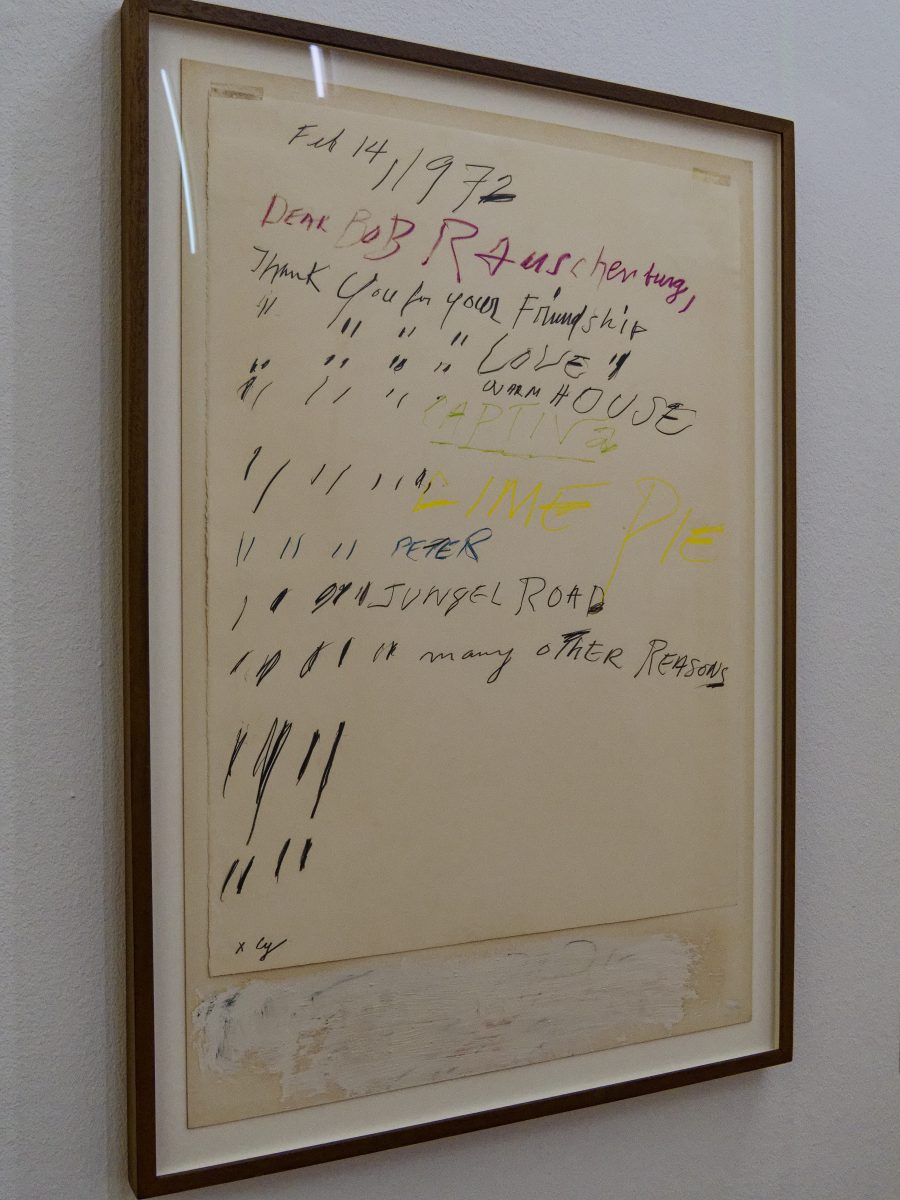 Feb 14, 1972
DEAR BOB Rauschenburg,
Thank You for your Friendship
" " " " LOVE "
" " " " WARM HOUSE
" " " " CAPTIVa
" " " " LIME PIE
" " " PETER
" " " " JUNGEL ROAD
" " " " " many oTHER REASONS
" " " "
" "
x Cy